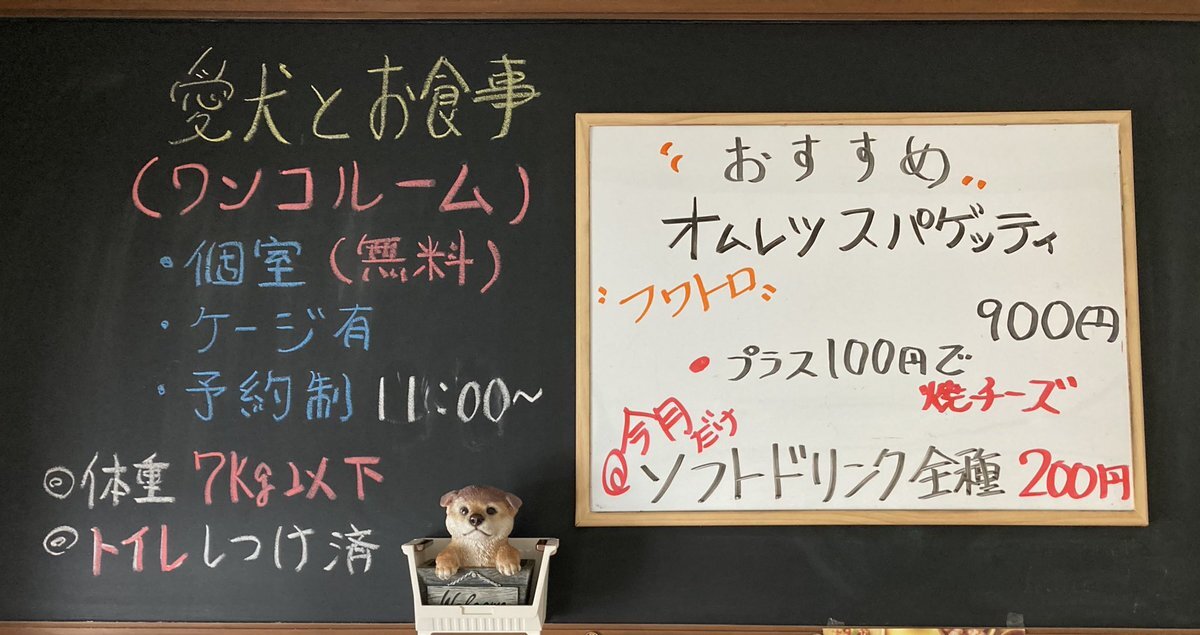 愛犬とお食事
(ワンコルーム)
・個室(無料)
・ケージ有
・予約制 11:00~
◎体重 7Kg以下
◎トイレしつけ済
Welcome
おすすめ
オムレツスパゲッティ
フワトロ
900円
・プラス100円で
焼チーズ
今月だけ
@ソフトドリンク全種 200円